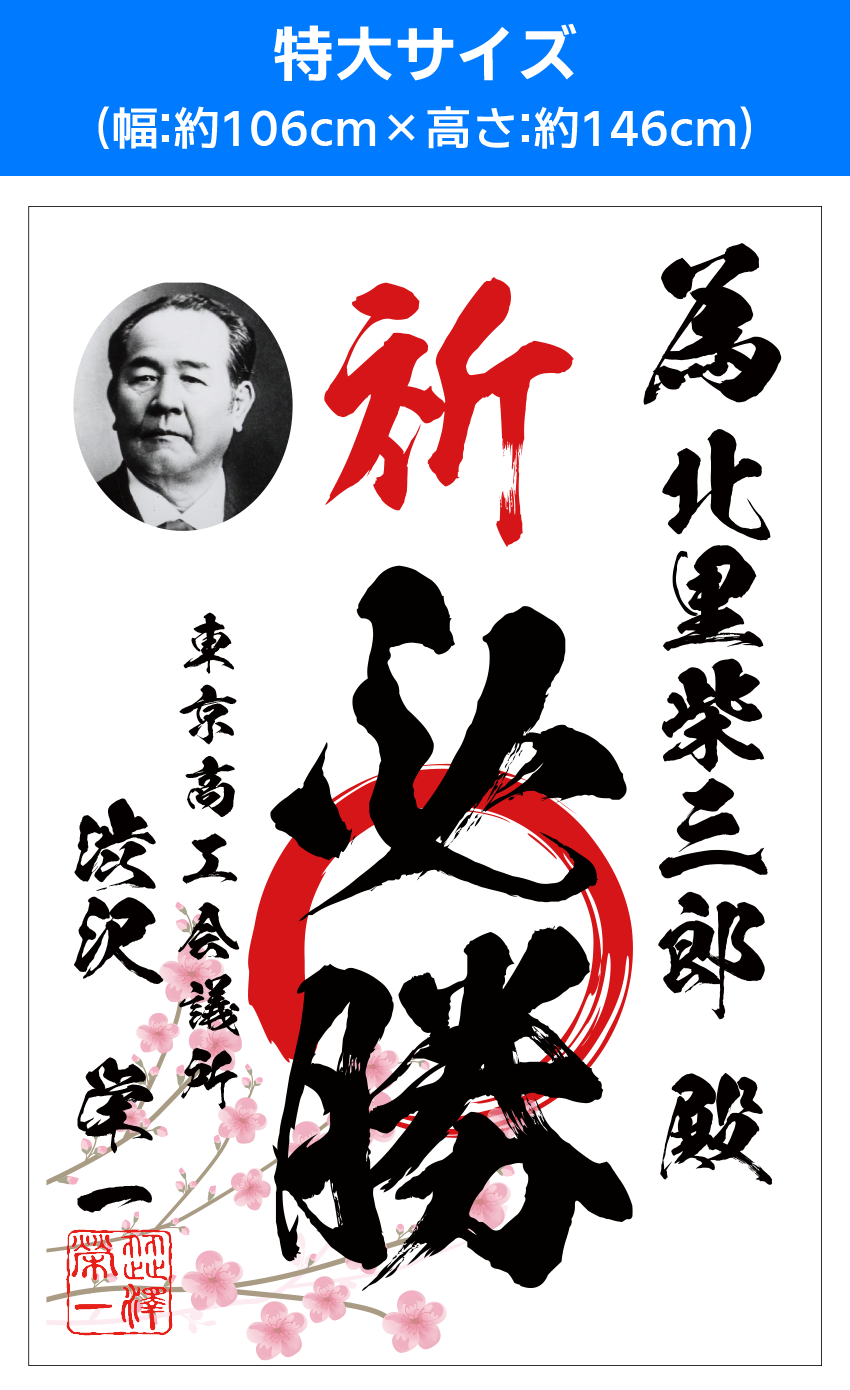 特大サイズ
(幅:約106cm×高さ:約146cm)
為 北里柴三郎 殿
祈
必勝
東京高工会議所
渋沢 栄一
澁澤
榮一